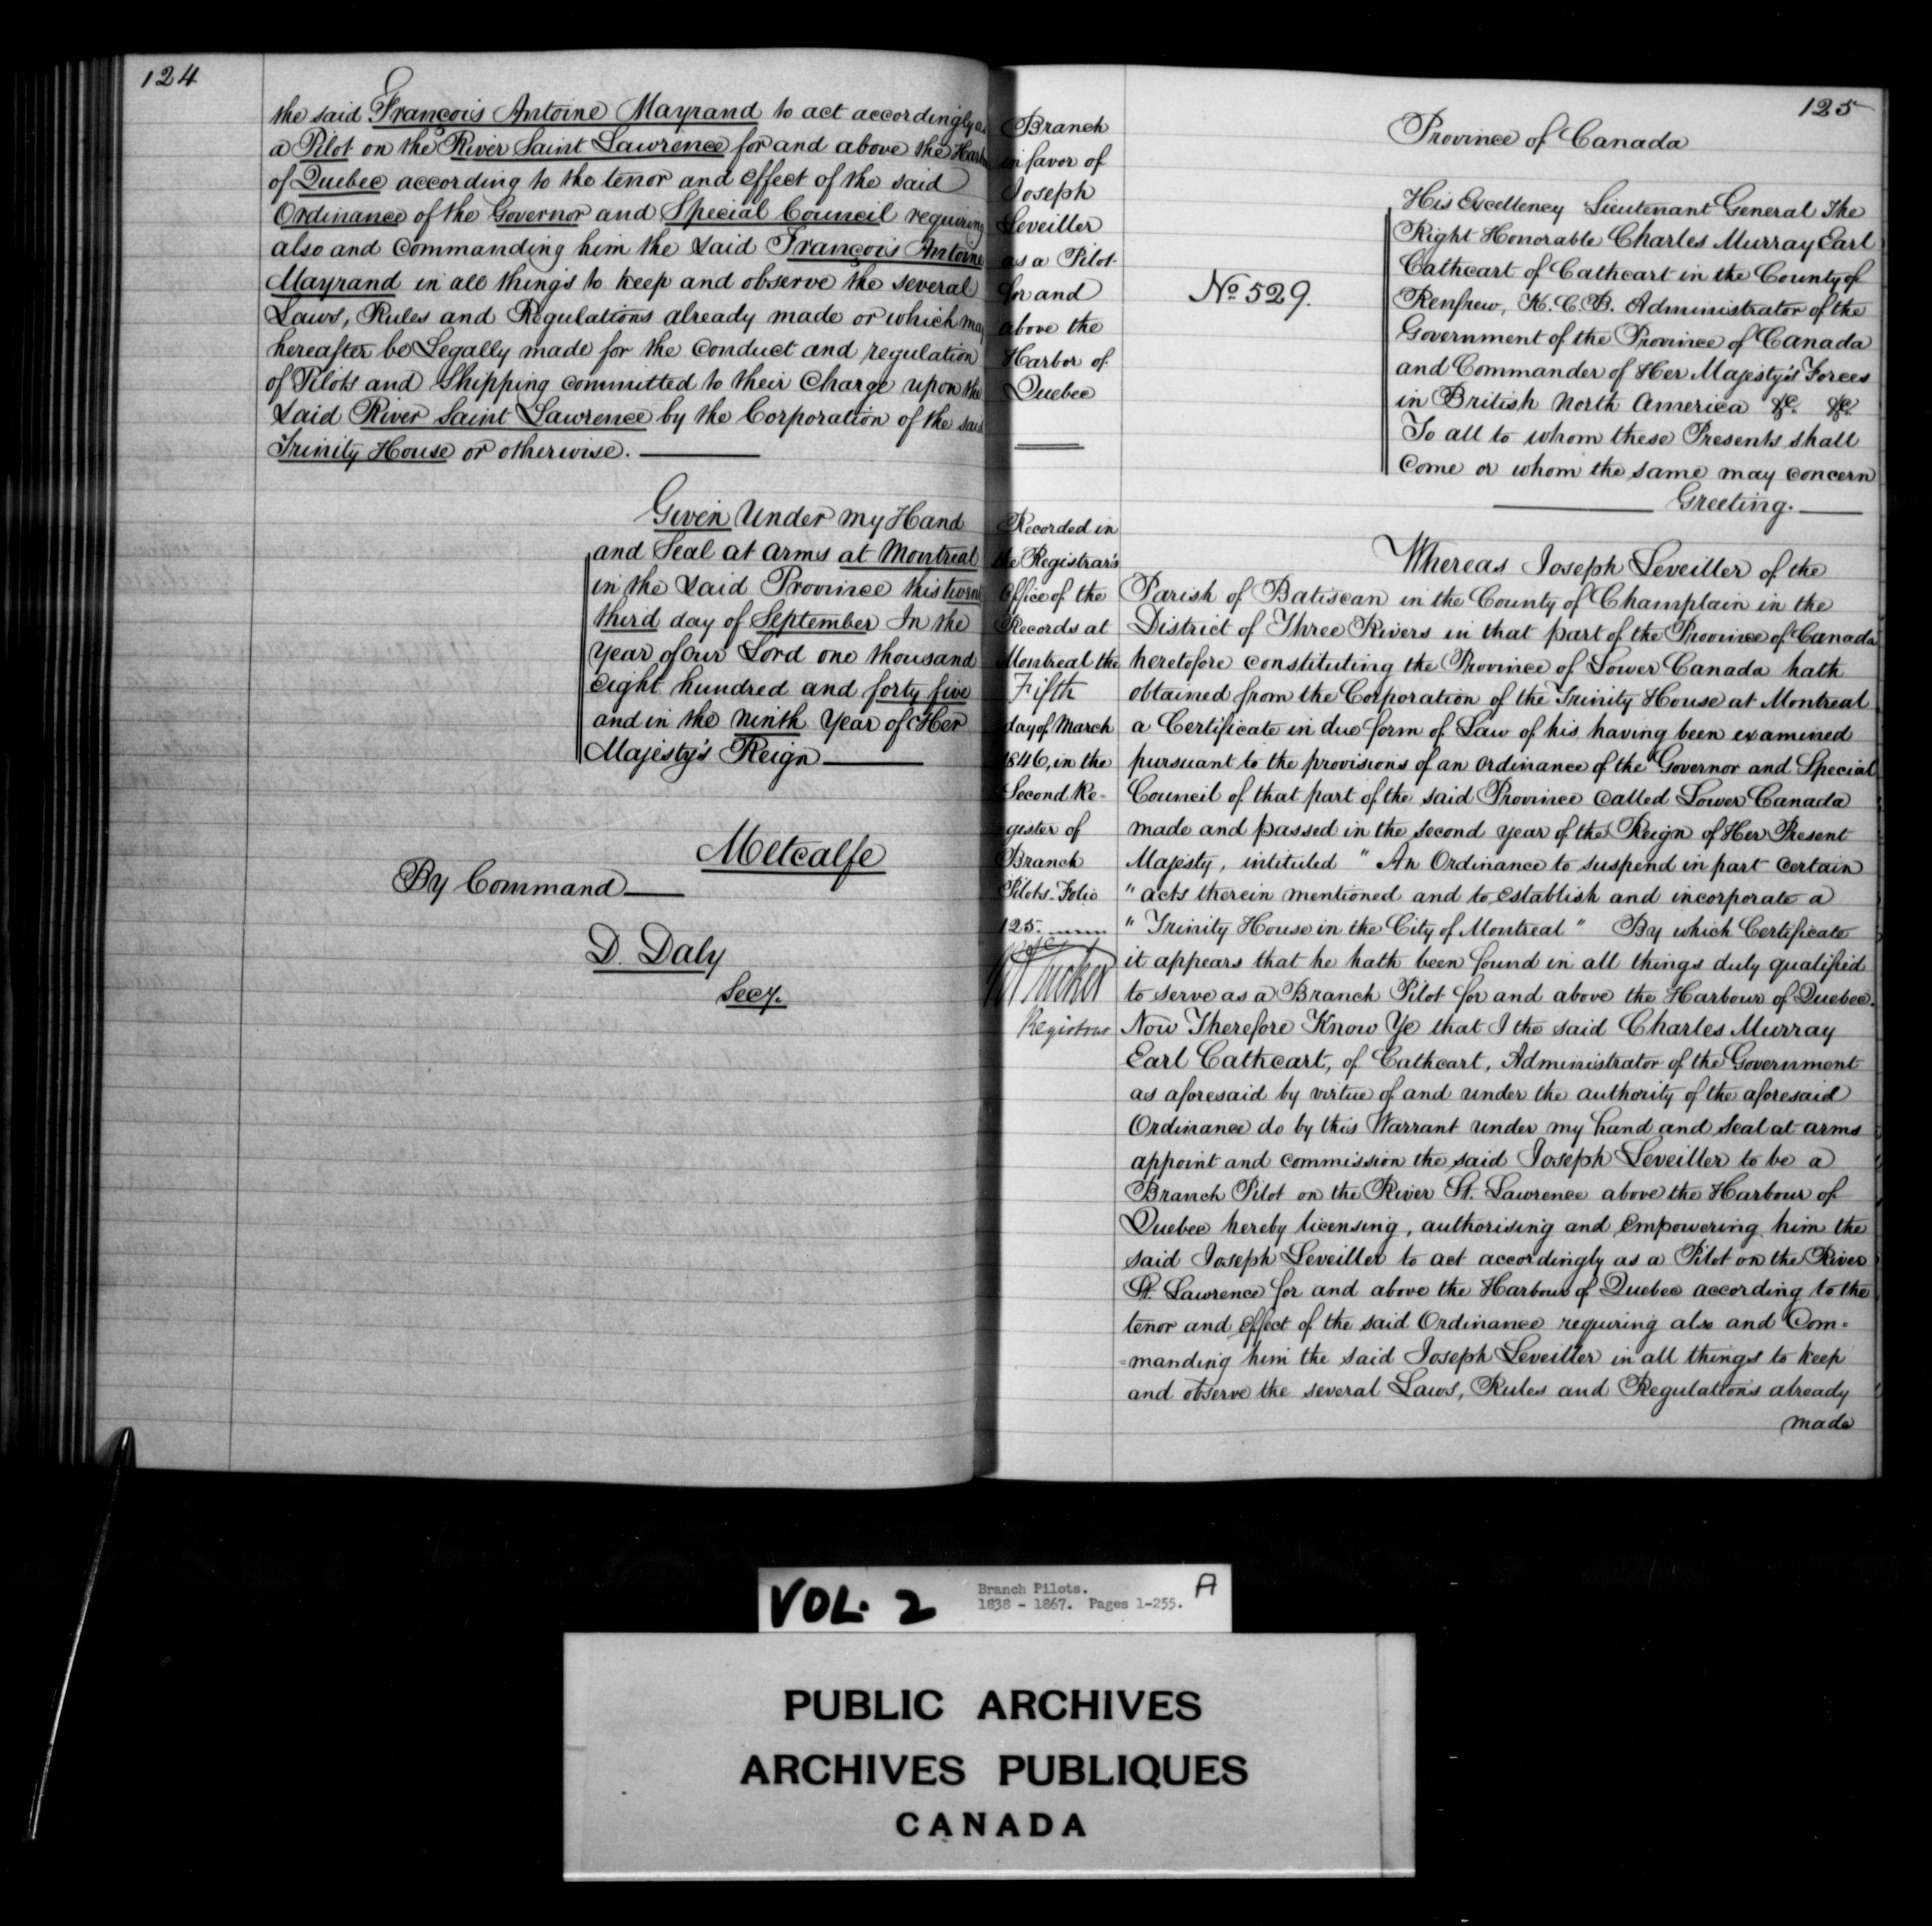 124
the said François Antoine Mayrand to act accordingly as
a Pilot on the River Saint Lawrence for and above the Harb
of Quebec according to the tenor and effect of the said
Ordinance of the Governor and Special Council requiring
also and Commanding him the said François Antoine
Mayrand in all things to keep and observe the several
Laws, Rules and Regulations already made or which may
hereafter be Legally made for the conduct and regulation
of Pilots and Shipping committed to their Charge upon the
said River Saint Lawrence by the Corporation of the said
Trinity House or otherwise.
Given Under my Hand
and Seal at arms at Montreal
in the said Province this twenty
third day of September In the
Year of our Lord one thousand
Eight hundred and forty five
and in the ninth Year of Her
Majesty's Reign
Metcalfe
By Command
D. Daly
Secy.
Branch
in favor of
Joseph
Leveiller
as a Pilot
for and
above the
Harbor of
Quebec
Recorded in
the Registrar's
Office of the
Records at
Montreal the
Fifth
day of March
1846, in the
Second Re-
gister of
Branch
Pilots. Folio
125.
Registrar
125
Province of Canada
No. 529.
His Excellency Lieutenant General The
Right Honorable Charles Murray Earl
Cathcart of Cathcart in the County of
Renfrew, K. C. B. Administrator of the
Government of the Province of Canada
and Commander of Her Majesty's Forces
in British North America &c. &c.
To all to whom these Presents shall
Come or whom the same may concern
Greeting.
Whereas Joseph Leveiller of the
Parish of Batiscan in the County of Champlain in the
District of Three Rivers in that part of the Province of Canada
heretofore constituting the Province of Lower Canada hath
obtained from the Corporation of the Trinity House at Montreal
a Certificate in due form of Law of his having been examined
pursuant to the provisions of an Ordinance of the Governor and Special
Council of that part of the said Province Called Lower Canada
made and passed in the second year of the Reign of Her Present
Majesty, intituled " An Ordinance to suspend in part certain
" acts therein mentioned and to establish and incorporate a
" Trinity House in the City of Montreal " By which Certificate
it appears that he hath been found in all things duly qualified
to serve as a Branch Pilot for and above the Harbour of Quebec.
Now Therefore Know Ye that I the said Charles Murray
Earl Cathcart, of Cathcart, Administrator of the Government
as aforesaid by virtue of and under the authority of the aforesaid
Ordinance do by this Warrant under my hand and Seal at arms
appoint and commission the said Joseph Leveiller to be a
Branch Pilot on the River St. Lawrence above the Harbour of
Quebec hereby licensing, authorising and Empowering him the
said Joseph Leveiller to act accordingly as a Pilot on the River
St. Lawrence for and above the Harbour of Quebec according to the
tenor and effect of the said Ordinance requiring also and Com-
=manding him the said Joseph Leveiller in all things to keep
and observe the several Laws, Rules and Regulations already
made
VOL. 2
Branch Pilots.
1838 - 1867. Pages 1-255.
A
PUBLIC ARCHIVES
ARCHIVES PUBLIQUES
CANADA